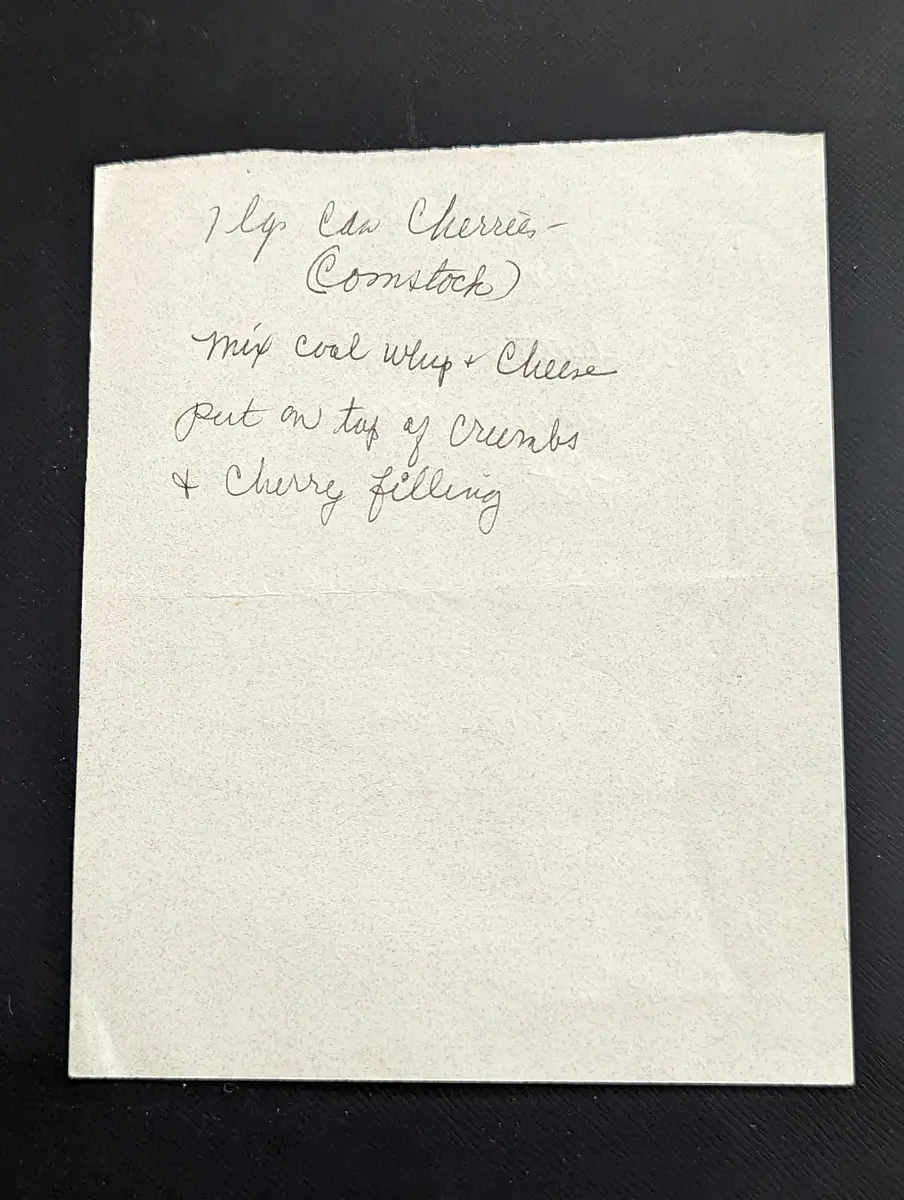 1 lg can Cherries-
(Comstock)
Mix cool whip + Cheese
put on top of Crumbs
+ Cherry filling